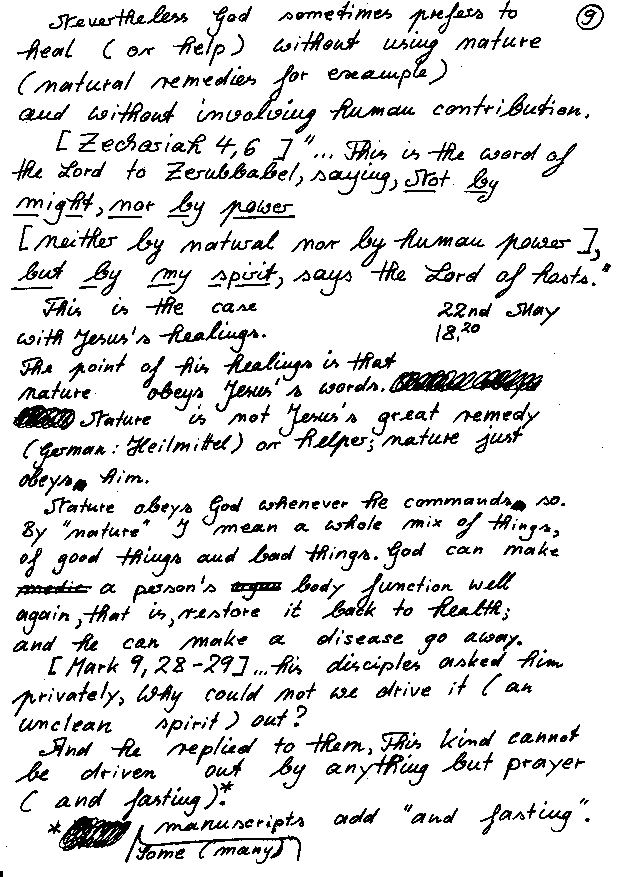 Nevertheless God sometimes prefers to 9
heal (or help) without using nature
(natural remedies for example)
and without involving human contribution.
[Zechariah 4,6] "... This is the word of
the Lord to Zerubbabel, saying, Not by
might, nor by power
[neither by natural nor by human power],
but by my spirit, says the Lord of hosts."
This is the case 22nd May
with Jesus's healings. 18.20
The point of his healings is that
nature obeys Jesus's words.
Nature is not Jesus's great remedy
(German: Heilmittel) or helper; nature just
obeys him.
Nature obeys God whenever he commands so.
By "nature" I mean a whole mix of things,
of good things and bad things. God can make
medic a person's organ body function well
again, that is, restore it back to health;
and he can make a disease go away.
[Mark 9, 28-29]... his disciples asked him
privately, Why could not we drive it (an
unclean spirit) out?
And he replied to them, This kind cannot
be driven out by anything but prayer
(and fasting)."*
* manuscripts add "and fasting".
Some (many)